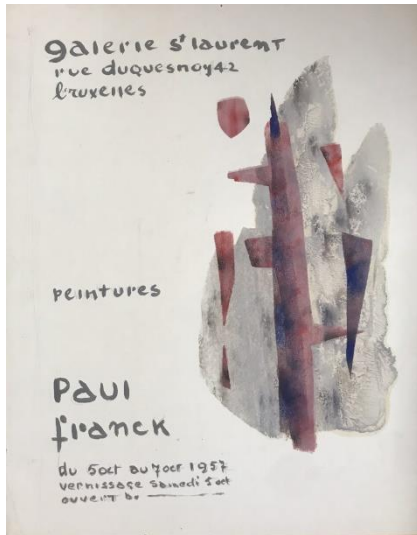 galerie st laurent
rue duquesnoy 42
bruxelles
peintures
Paul
franck
du 5 oct au 7 oct 1957
vernissage samedi 5 oct
ouvert